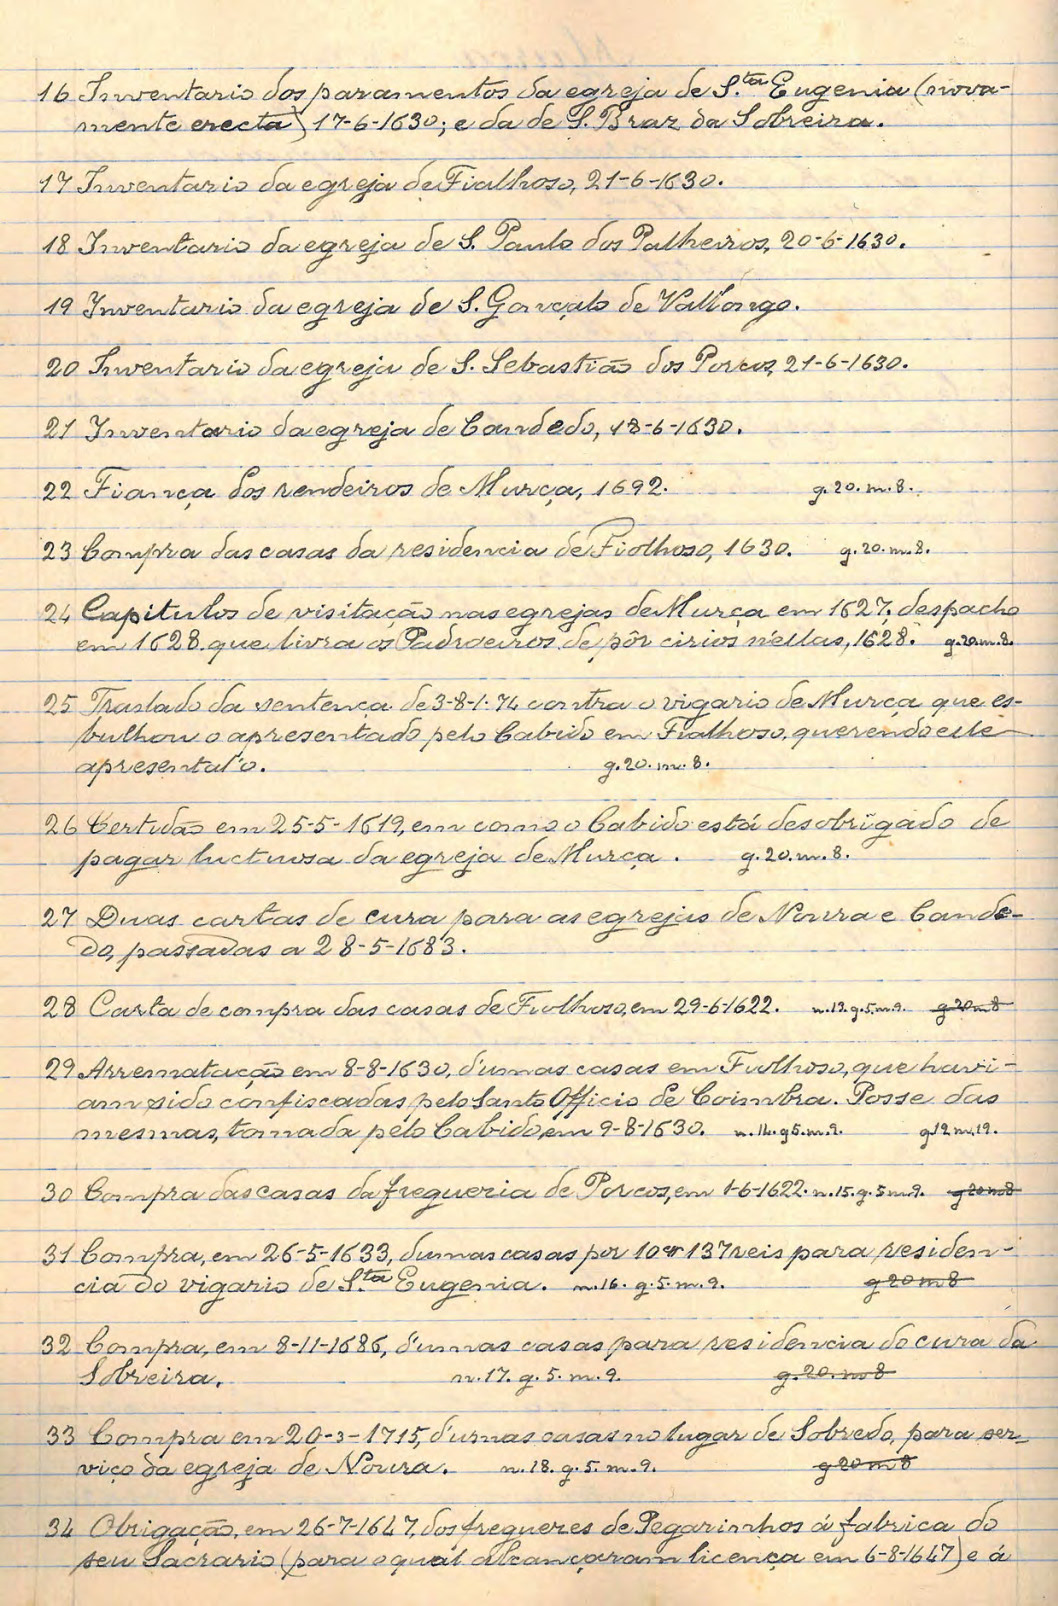 16 Inventario dos paramentos da egreja de S.ta Eugenia (nova-
mente erecta) 17-6-1630; e da de S. Braz da Sobreira.
17 Inventario da egreja de Fialhoso, 21-6-1630.
18 Inventario da egreja de S. Paulo dos Palheiros, 20-6-1630.
19 Inventario da egreja de S. Gonçalo de Vallongo.
20 Inventario da egreja de S. Sebastião dos Porcos, 21-6-1630.
21 Inventario da egreja de Candedo, 18-6-1630.
22 Fiança dos rendeiros de Murça, 1692. g. 20. m. 8.
23 Compra das casas da residencia de Fiolhoso, 1630. g. 20. m. 8.
24 Capitulos de visitação nas egrejas de Murça em 1627; despacho
em 1628 que livra os Padroeiros de pôr cirios n'ellas, 1628. g. 20. m. 8.
25 Traslado da sentença de 3-8-1.74 contra o vigario de Murça que es-
bulhou o apresentado pelo Cabido em Fialhoso, querendo elle
apresental'o. g. 20. m. 8.
26 Certidão em 25-5-1619, em como o Cabido está desobrigado de
pagar luctuosa da egreja de Murça. g. 20. m. 8.
27 Duas cartas de cura para as egrejas de Noura e Cande-
do, passadas a 28-5-1683.
28 Carta de compra das casas de Fiolhoso, em 29-6-1622. n. 13. g. 5. m. 9. g 20 m 8
29 Arrematação em 8-8-1630, d'umas casas em Fiolhoso, que havi-
am sido confiscadas pelo Santo Officio de Coimbra. Posse das
mesmas, tomada pelo Cabido, em 9-8-1630. n. 14. g 5. m. 9. g 12 m. 19.
30 Compra das casas da freguezia de Porcos, em 1-6-1622. n. 15. g. 5 m. 9. g 20 m 8
31 Compra, em 26-5-1633, d'umas casas por 137 reis para residen-
cia do vigario de S.ta Eugenia. n. 16. g. 5. m. 9. g 20 m 8
32 Compra, em 8-11-1686, d'umas casas para residencia do cura da
Sobreira. n. 17. g. 5. m. 9. g. 20. m 8
33 Compra em 20-3-1715, d'umas casas no lugar de Sobredo, para ser-
viço da egreja de Noura. n. 18. g. 5. m. 9. g 20 m 8
34 Obrigação, em 26-7-1647, dos freguezes de Pegarinhos á fabrica do
seu Sacrario (para o qual alcançaram licença em 6-8-1647) e á